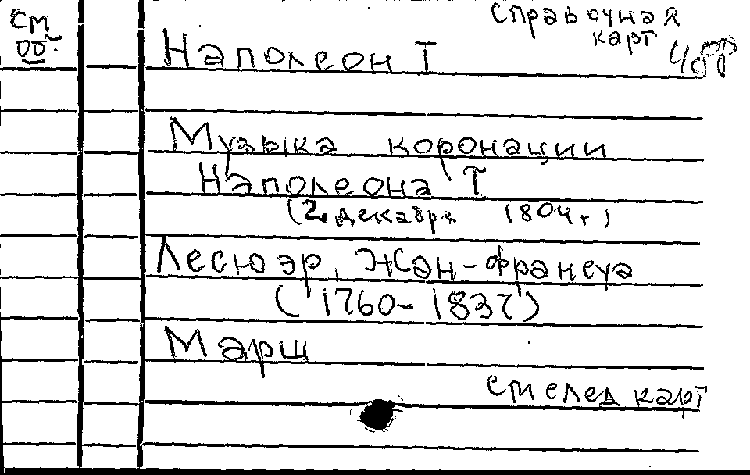 см
оо.
справочная
карт
Наполеон I
Музыка коронации
Наполеона I
(2 декабря 1804 г.)
Лесюэр, Жан-Франсуа
(1760-1837)
Марш
см след карт